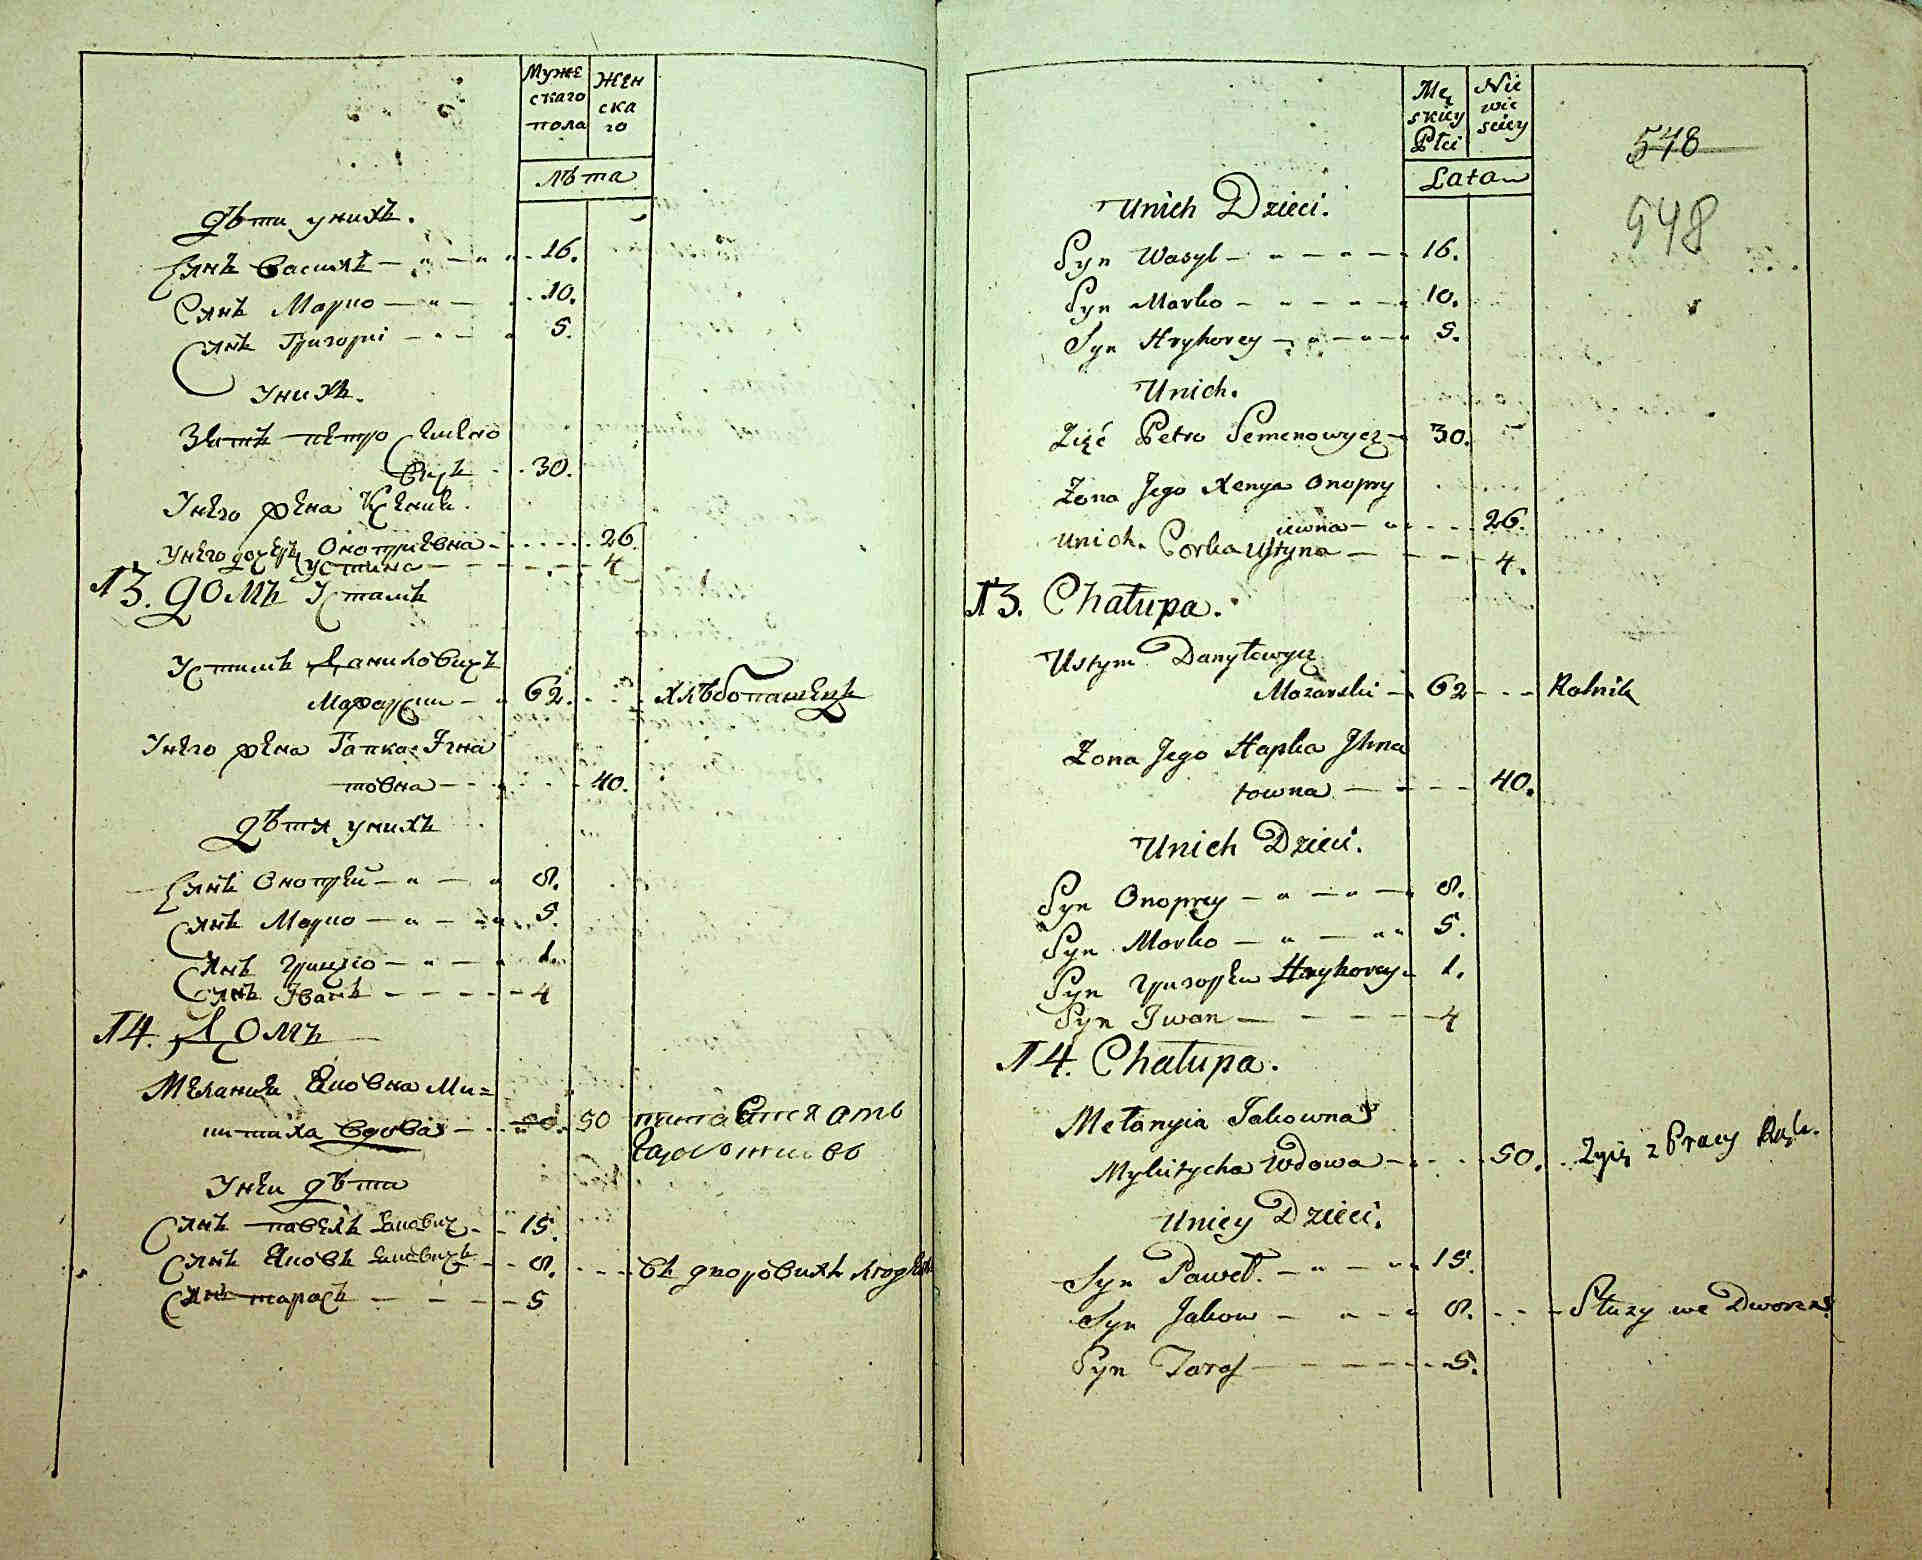 Муже
скаго
пола
Жен
ска
го
лѣта
дѣти унихъ.
Сынъ василь 16.
Сынъ Марко 10.
Сынъ Григорій 5.
Унихъ.
Зять петро Семено
вичъ 30.
Унего жена Ксения
Оноприевна 26.
Унего дочерь Устина 4
13. домъ Устимъ
Устимъ Даниловичъ
62. хлѣбопашецъ
Унего жена Гапка Игна
товна 40.
дѣти унихъ
Сынъ Онопрей 8.
Сынъ Марко 5.
Сынъ Грицко 1.
Сынъ Іванъ 4
14. Домъ
Мелания Яковна Ми=
китиха вдова 50 питается отъ
Унеи дѣти
Сынъ павелъ 15.
Сынъ Яковъ 8. въ дворовихъ людяхъ
Сынъ тарасъ 5
Mę
skiey
Płci
Nie
wie
sciey
Lata
548
548
Unich Dzieci.
Syn Wasyl 16.
Syn Marko 10.
Syn Hryhorey 5.
Unich.
Zięć Petro Semenowycz 30.
Żona Jego Xenya Onopry
iewna 26.
unich. Corka Ustyna 4.
13. Chałupa.
Ustym Danyłowycz
Mazarski 62 Rolnik
Żona Jego Hapka Jhna
towna 40.
Unich Dzieci.
Syn Onoprey 8.
Syn Marko 5.
Syn Григорей Hryhorey 1.
Syn Iwan 4
14. Chałupa.
Mełanyia Jakowna
Mykitycha Wdowa 50. Zyię z Pracy Rąk.
Uniey Dzieci.
Syn Paweł. 15.
Syn Jakow 8. Słuzy we Dworze
Syn Taras 5.